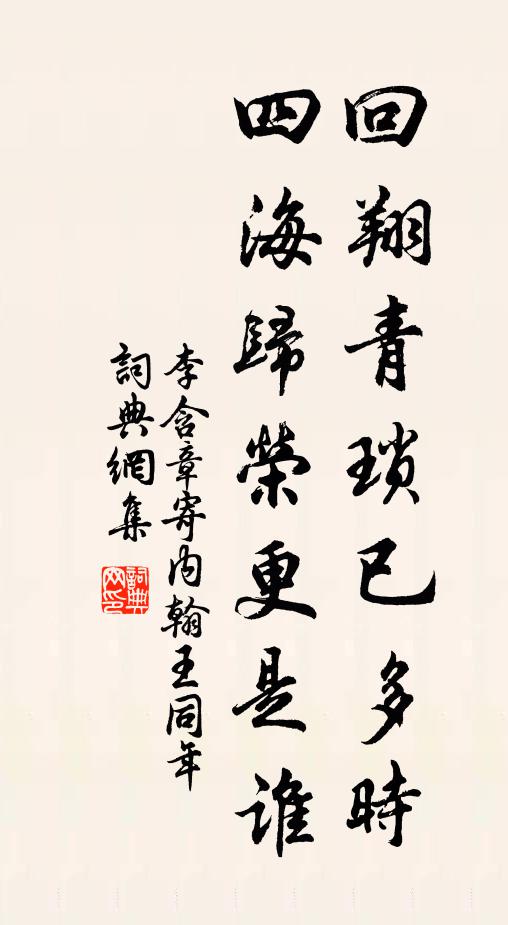 回翔青瑣已多時
四海歸榮更是誰
李含章寄内翰王同年
詞典網集
詞典網印